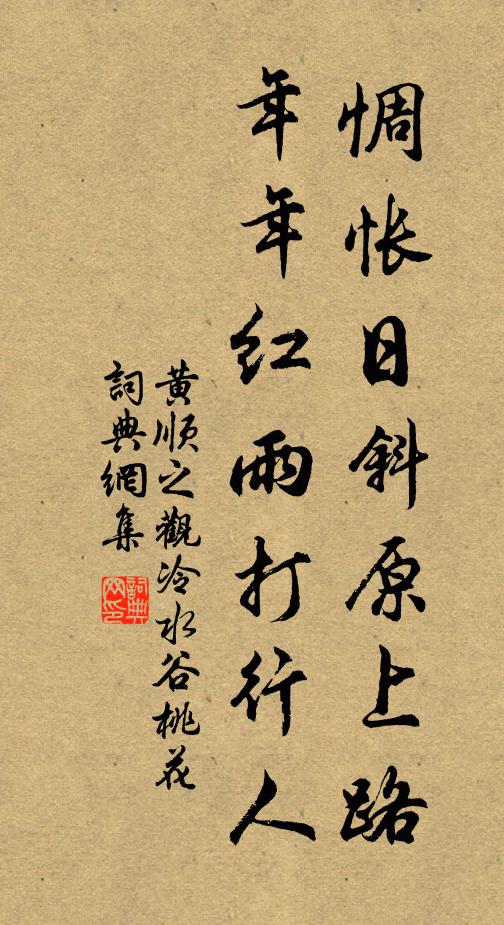 惆悵日斜原上路
年年紅雨打行人
黃順之觀冷水谷桃花
詞典網集
詞典網印